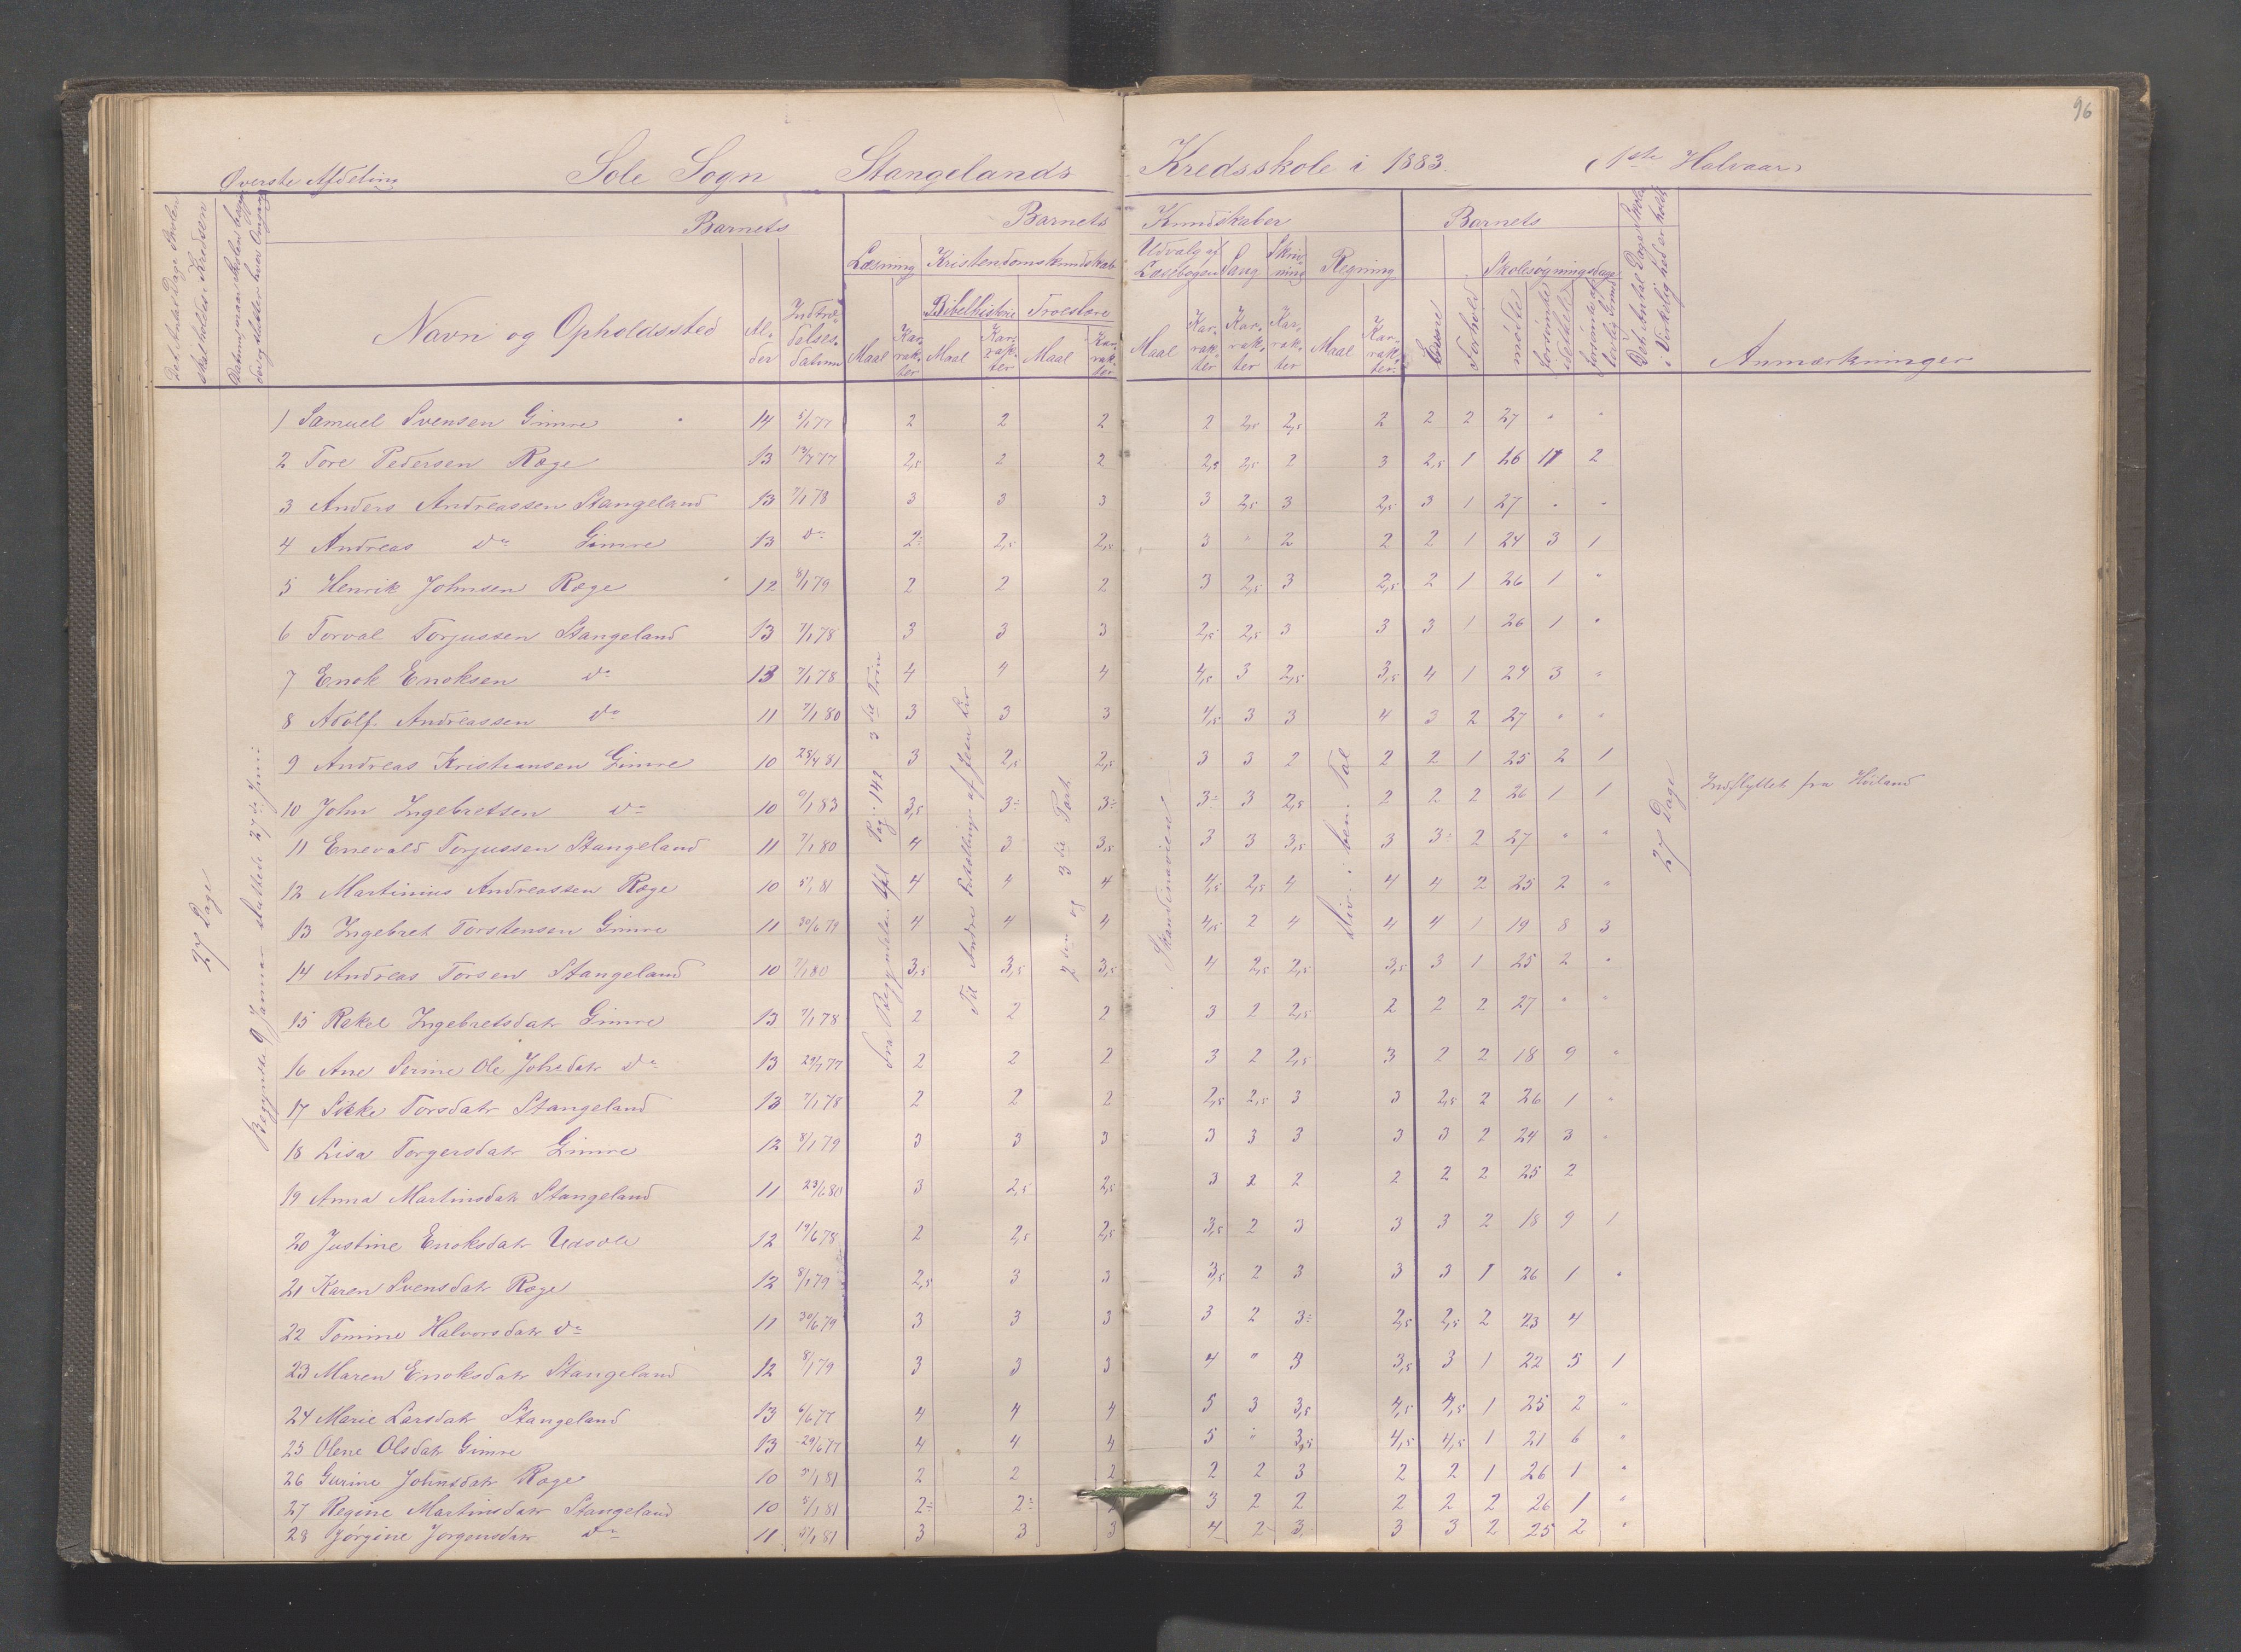 96
Øverste Afdeling Sole Sogn Stangelands Kredsskole i 1883. (1ste Halvaar)
Det Antal Dage Skolen skal holdes i Kredsen
Barnets
Barnets Kundskaber
Barnets
Det Antal Dage Skolen i Virkelighed er holdt
Læsning Kristendomskundskab Udvalg af Læsebogen Sang Skrivning Regning Evne Forhold Skolesøgningsdage
Bibelhistorie Troeslære
Navn og Opholdssted Alder Indtrædelsesdatum Maal Karrakter Maal Karrakter Maal Karrakter Maal Karrakter Karrakter Karrakter Maal Karrakter mødte forsømte forsømte af lovlig Grund Anmærkninger
27 Dage
Begyndte 9 Januar sluttede 27de Juni
Fra Begyndelsen til Pag: 142 3die Trin
Til Andre Fortællinger af Jesu Liv
2den og 3die Part
Skandinavien
Div. i ben. Tal
27 Dage
1 Samuel Svensen Gimre 14 5/1 77 2 2 2 2 2,5 2,5 2 2 2 27 " "
2 Tore Pedersen Røge 13 13/4 77 2,5 2 2 2,5 2,5 2 3 2,5 1 26 11 2
3 Anders Andreassen Stangeland 13 7/1 78 3 3 3 3 2,5 3 2,5 3 1 27 " "
4 Andreas do Gimre 13 do 2÷ 2,5 2,5 3 " 2 2 2 1 24 3 1
5 Henrik Johnsen Røge 12 8/1 79 2 2 2 3 2,5 3 2,5 2 1 26 1 "
6 Torval Torjussen Stangeland 13 7/1 78 3 3 3 2,5 2,5 3 3 3 1 26 1 "
7 Enok Enoksen do 13 7/1 78 4 4 4 4,5 3 2,5 3,5 4 1 24 3 "
8 Adolf Andreassen do 11 7/1 80 3 3 3 4,5 3 3 4 3 2 27 " "
9 Andreas Kristiansen Gimre 10 28/4 81 3 2,5 2,5 3 3 2 2 2 1 25 2 1
10 John Ingebretsen do 10 9/1 83 3,5 3÷ 3÷ 3÷ 3 2,5 2 2 2 26 1 1 Indflyttet fra Høiland
11 Enevald Torjussen Stangeland 11 7/1 80 4 3 3,5 3 3 3,5 3 3÷ 2 27 " "
12 Martinius Andreassen Røge 10 5/1 81 4 4 4 4,5 2,5 4 4 4 2 25 2 "
13 Ingebret Torstensen Gimre 11 30/6 79 4 4 4 4,5 2 4 4 4 1 19 8 3
14 Andreas Torsen Stangeland 10 7/1 80 3,5 3,5 3,5 4 2,5 2,5 3,5 3 1 25 2 "
15 Rakel Ingebretsdatr Gimre 13 7/1 78 2 2 2 3 2 2,5 2 2 2 27 " "
16 Ane Serine Ole Johsdatr do 13 29/1 77 2 2 2 3 2 2,5 3 2 2 18 9 "
17 Sikke Torsdatr Stangeland 13 7/1 78 2 2 2 2,5 2,5 3 3 2,5 2 26 1 "
18 Lisa Torgersdatr Gimre 12 8/1 79 3 3 3 3 3 3 3 3 2 24 3 "
19 Anna Martinsdatr Stangeland 11 23/6 80 3 2,5 2,5 3 2 2 2 2 2 25 2
20 Justine Enoksdatr Udsole 12 19/6 78 2 2,5 2,5 3,5 2 3 3 3 2 18 9 1
21 Karen Svensdatr Røge 12 8/1 79 2,5 3 3 3,5 2 3 3 3 1 26 1 "
22 Tomine Halvorsdatr do 11 30/6 79 3 3 3 3 2 3÷ 2,5 2,5 2 23 4
23 Maren Enoksdatr Stangeland 12 8/1 79 3 3 3 4 " 3 3,5 3 1 22 5 1
24 Marie Larsdatr Stangeland 13 6/6 77 4 4 4 5 3 3,5 4,5 4,5 1 25 2 "
25 Olene Olsdatr Gimre 13 29/6 77 4 4 4 5 " 3,5 4,5 4,5 1 21 6 "
26 Gurine Johnsdatr Røge 10 5/1 81 2 2 2 2 2 3 2 2 1 26 1 "
27 Regine Martinsdatr Stangeland 10 5/1 81 2÷ 2÷ 3 2 2 2 2 2 26 1 "
28 Jørgine Jørgensdatr do 11 5/1 81 3 3 3 4 2 3 3 3 2 25 2 "